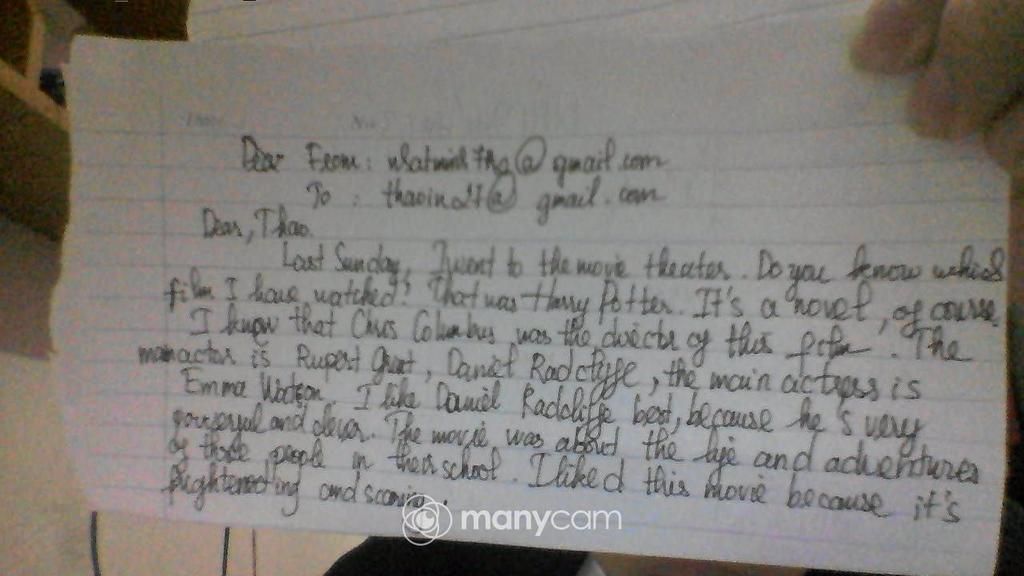 Dear From: nhatminh7hg@gmail.com
To : thaoin27@gmail.com
Dear, Thao.
Last Sunday, I went to the movie theater. Do you know which
film I have watched? That was Harry Potter. It's a novel, of course
I know that Chris Columbus was the director of this film. The
main actor is Rupert Grint, Daniel Radcliffe, the main actress is
Emma Watson. I like Daniel Radcliffe best, because he's very
powerful and clever. The movie was about the life and adventures
of those people in their school. I liked this movie because it's
and
manycam